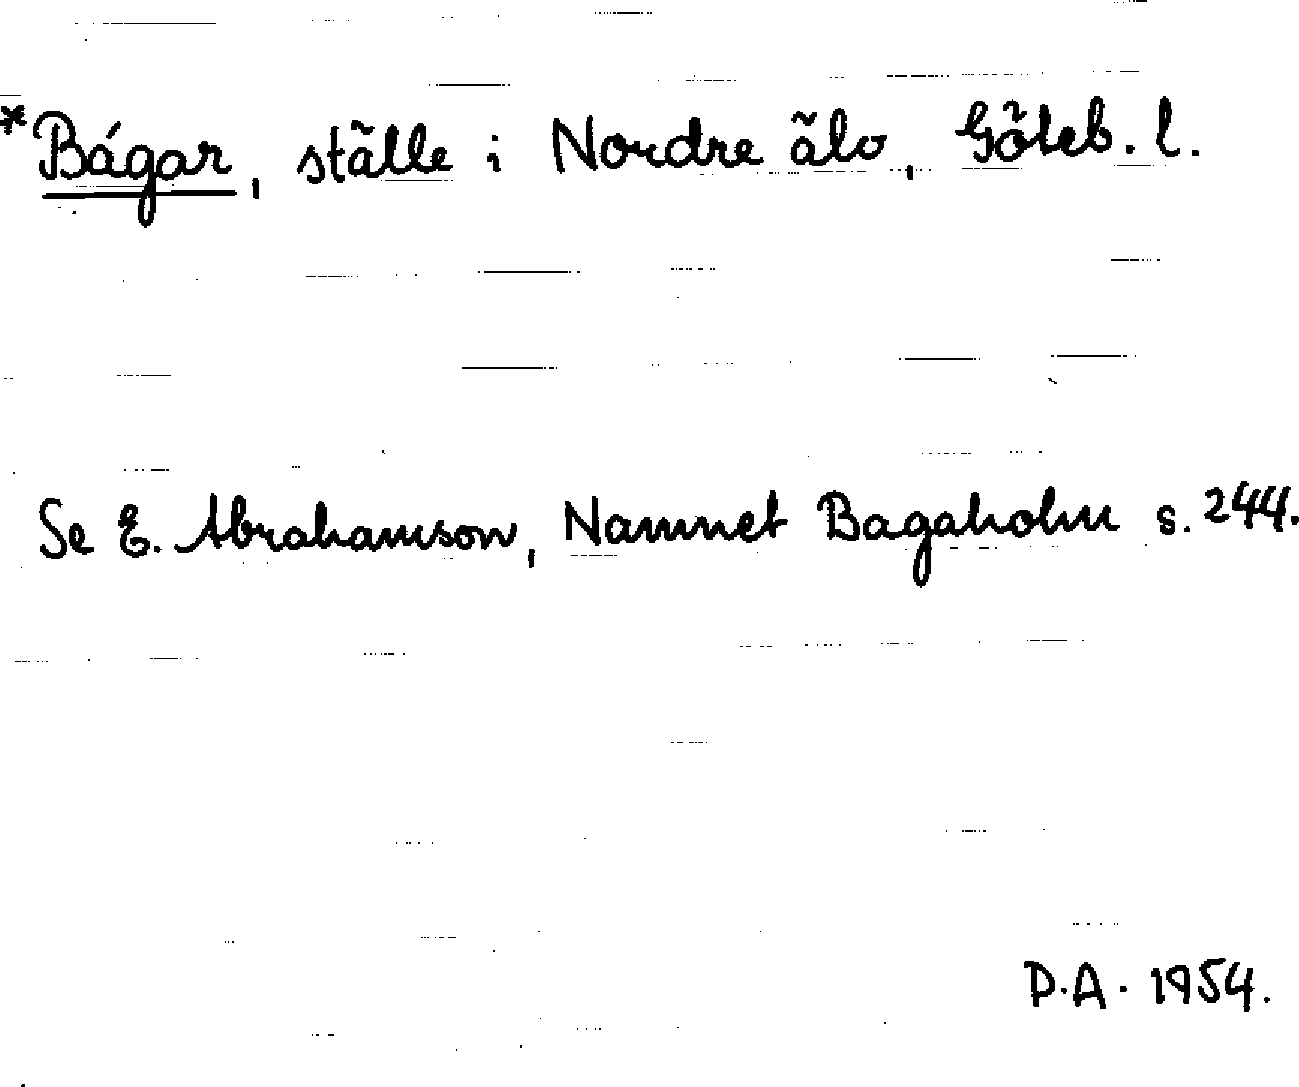 *Bágar, ställe i Nordre älv, Göteb. l.
Se E. Abrahamson, Namnet Bagaholm s. 244.
P.A. 1954.